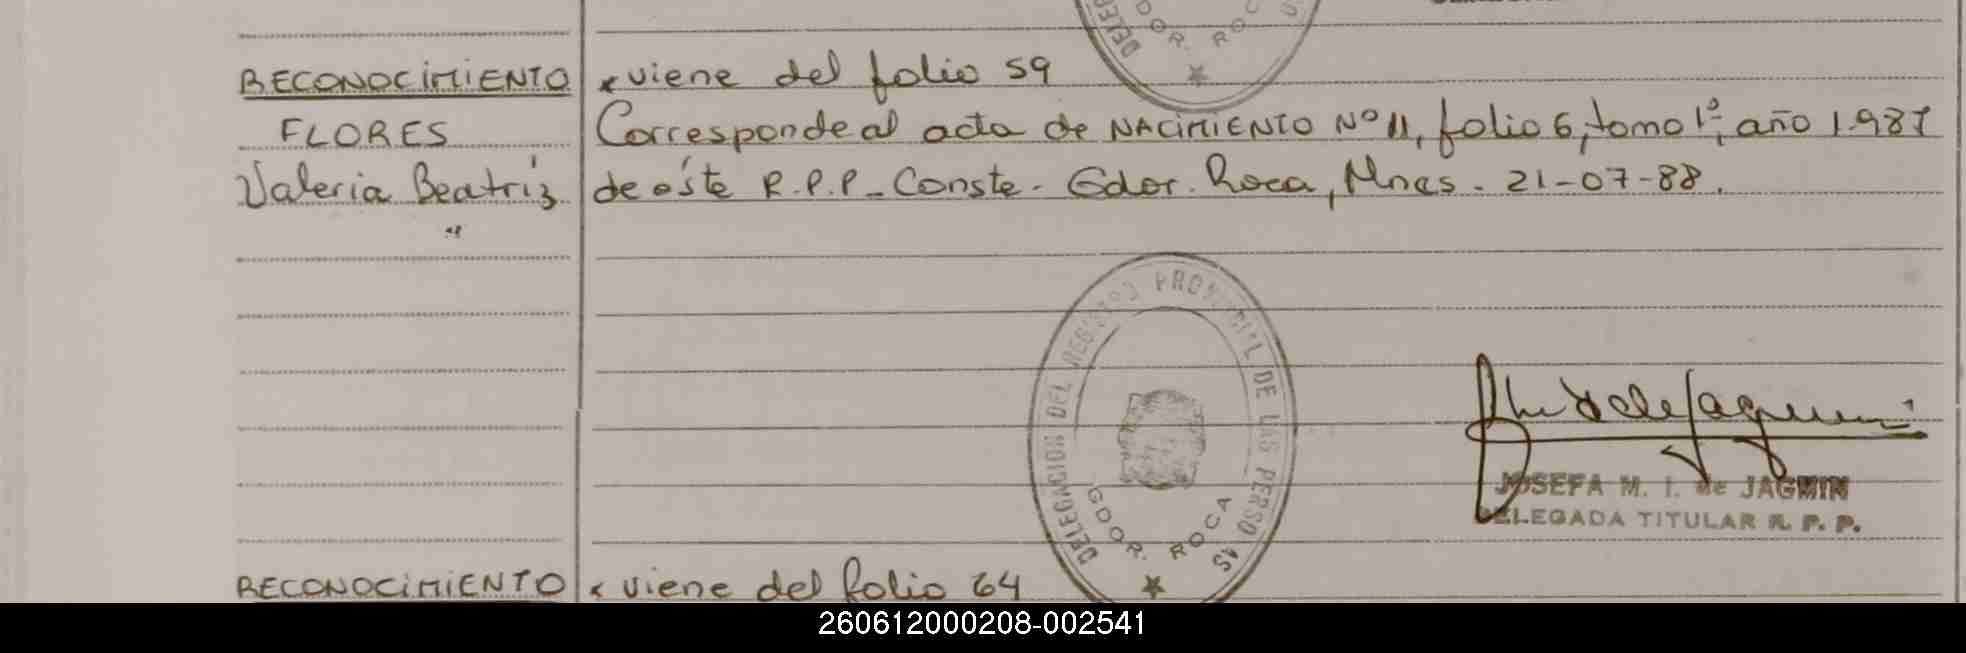 DELE
GDOR. ROCA
RECONOCIMIENTO × viene del folio 59
FLORES Corresponde al acta de NACIMIENTO Nº 11, folio 6, tomo 1º, año 1.987
Valeria Beatríz de éste R.P.P_ Conste. Gdor. Roca, Mnes. 21-07-88.
DELEGACION DEL REGISTRO PROVINCIAL DE LAS PERSONAS
GDOR. ROCA
JOSEFA M. I. de JAGMIN
DELEGADA TITULAR R. P. P.
RECONOCIMIENTO × viene del folio 64
260612000208-002541